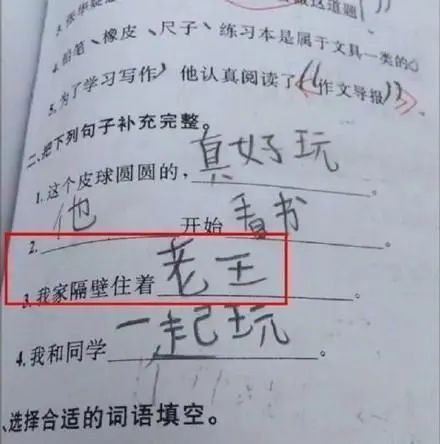 这道题
4.铅笔、橡皮、尺子、练习本是属于文具一类的。
5.为了学习写作,他认真阅读了《作文导报》
二、把下列句子补充完整。
1.这个皮球圆圆的,真好玩。
2.他开始看书。
3.我家隔壁住着老王。
4.我和同学一起玩。
、选择合适的词语填空。